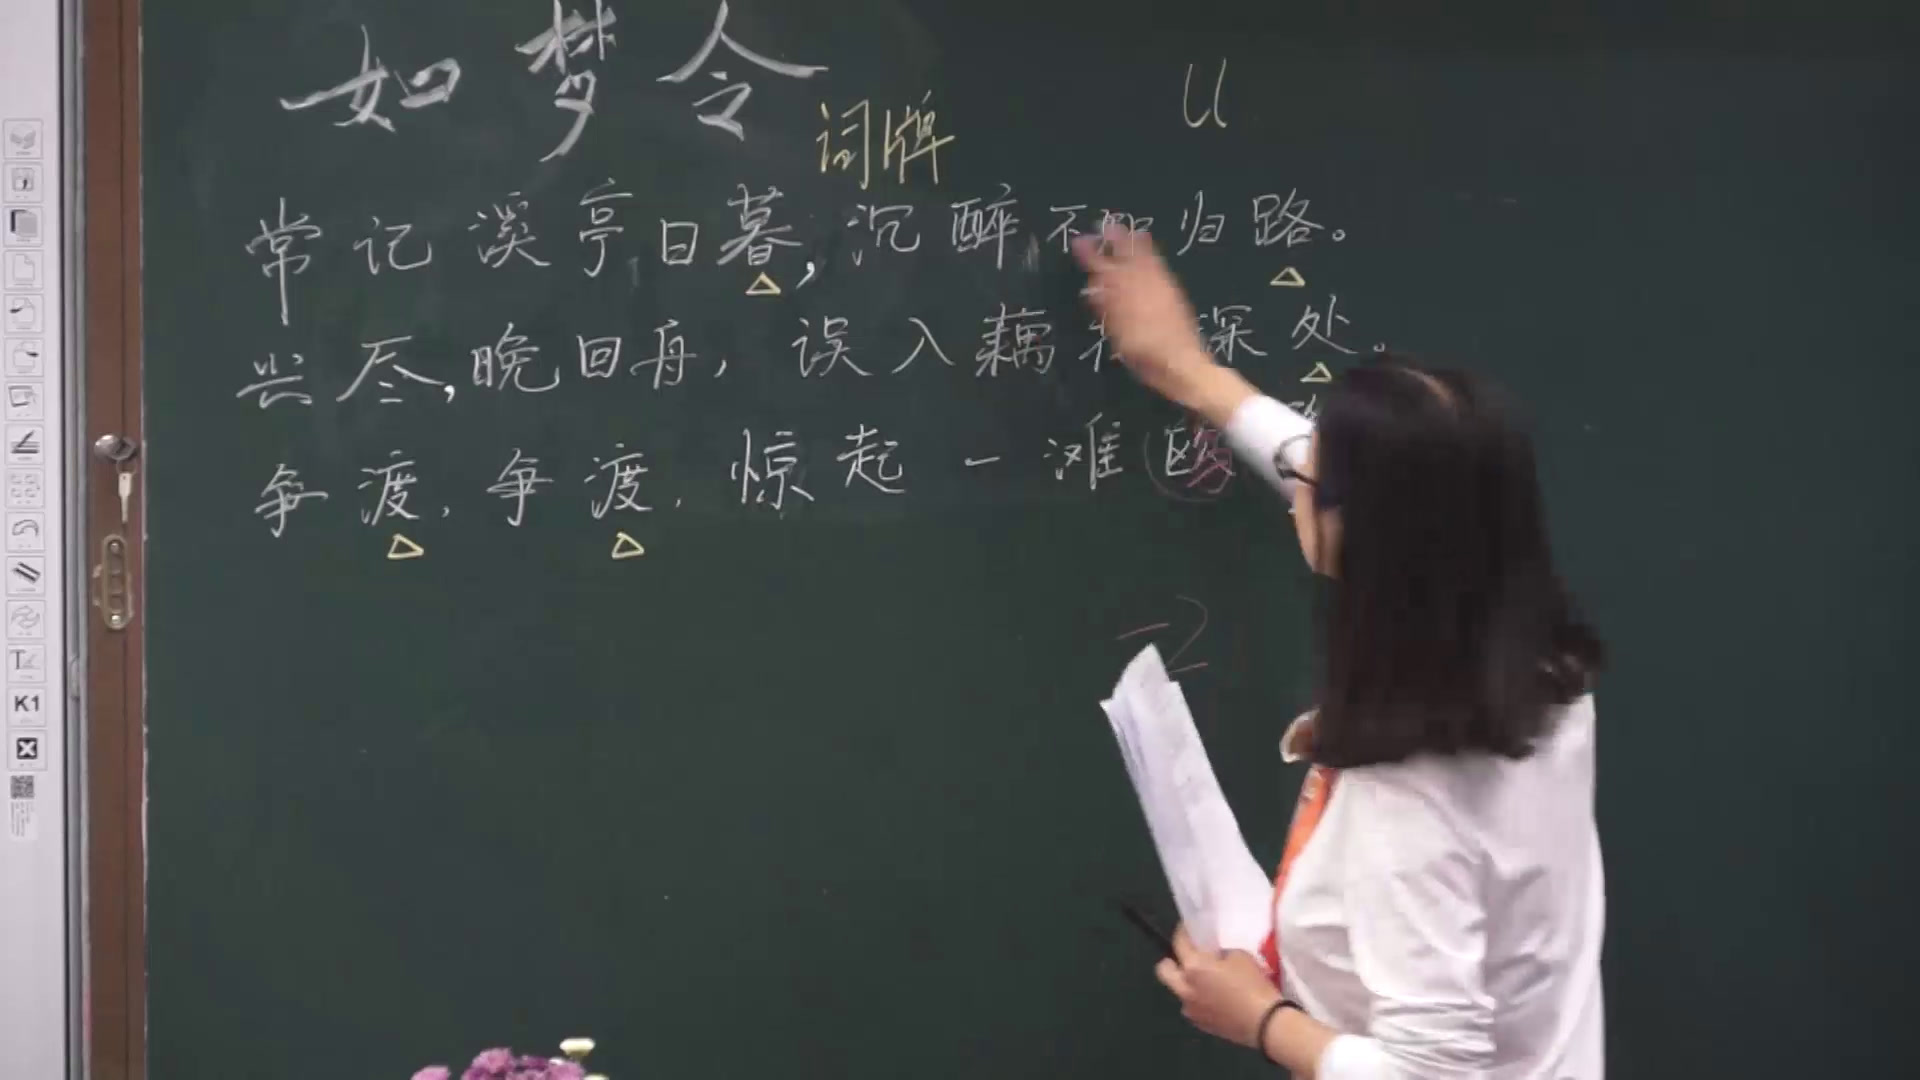 如梦令
词牌
u
常记溪亭日暮,沉醉不知归路。
兴尽,晚回舟,误入藕深处。
争渡,争渡,惊起一滩鸥
K1